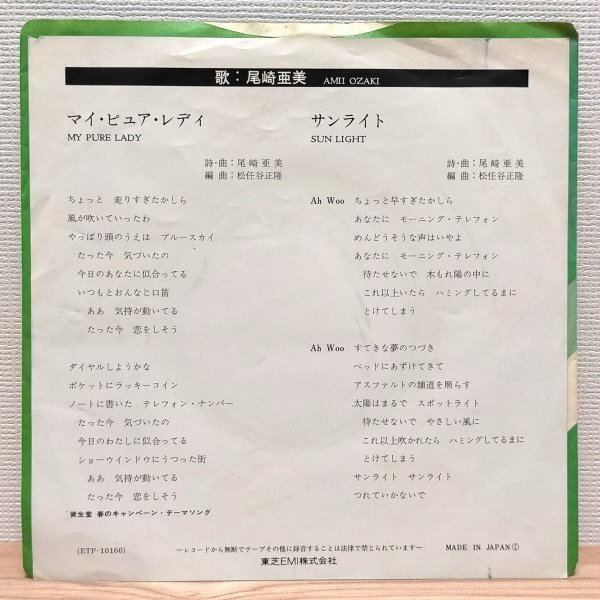 歌：尾崎亜美 AMII OZAKI
マイ・ピュア・レディ
MY PURE LADY
詩・曲：尾崎亜美
編曲：松任谷正隆
ちょっと 走りすぎたかしら
風が吹いていったわ
やっぱり頭のうえは ブルースカイ
たった今 気づいたの
今日のあなたに似合ってる
いつもとおんなじ口笛
ああ 気持が動いてる
たった今 恋をしそう
ダイヤルしようかな
ポケットにラッキーコイン
ノートに書いた テレフォン・ナンバー
たった今 気づいたの
今日のわたしに似合ってる
ショーウインドウにうつった街
ああ 気持が動いてる
たった今 恋をしそう
資生堂 春のキャンペーン・テーマソング
サンライト
SUN LIGHT
詩・曲：尾崎亜美
編曲：松任谷正隆
Ah Woo ちょっと早すぎたかしら
あなたに モーニング・テレフォン
めんどうそうな声はいやよ
あなたに モーニング・テレフォン
待たせないで 木もれ陽の中に
これ以上いたら ハミングしてるまに
とけてしまう
Ah Woo すてきな夢のつづき
ベッドにあずけてきて
アスファルトの舗道を照らす
太陽はまるで スポットライト
待たせないで やさしい風に
これ以上吹かれたら ハミングしてるまに
とけてしまう
サンライト サンライト
つれていかないで
(ETP-10166)
—レコードから無断でテープその他に録音することは法律で禁じられています—
MADE IN JAPAN①
東芝EMI株式会社